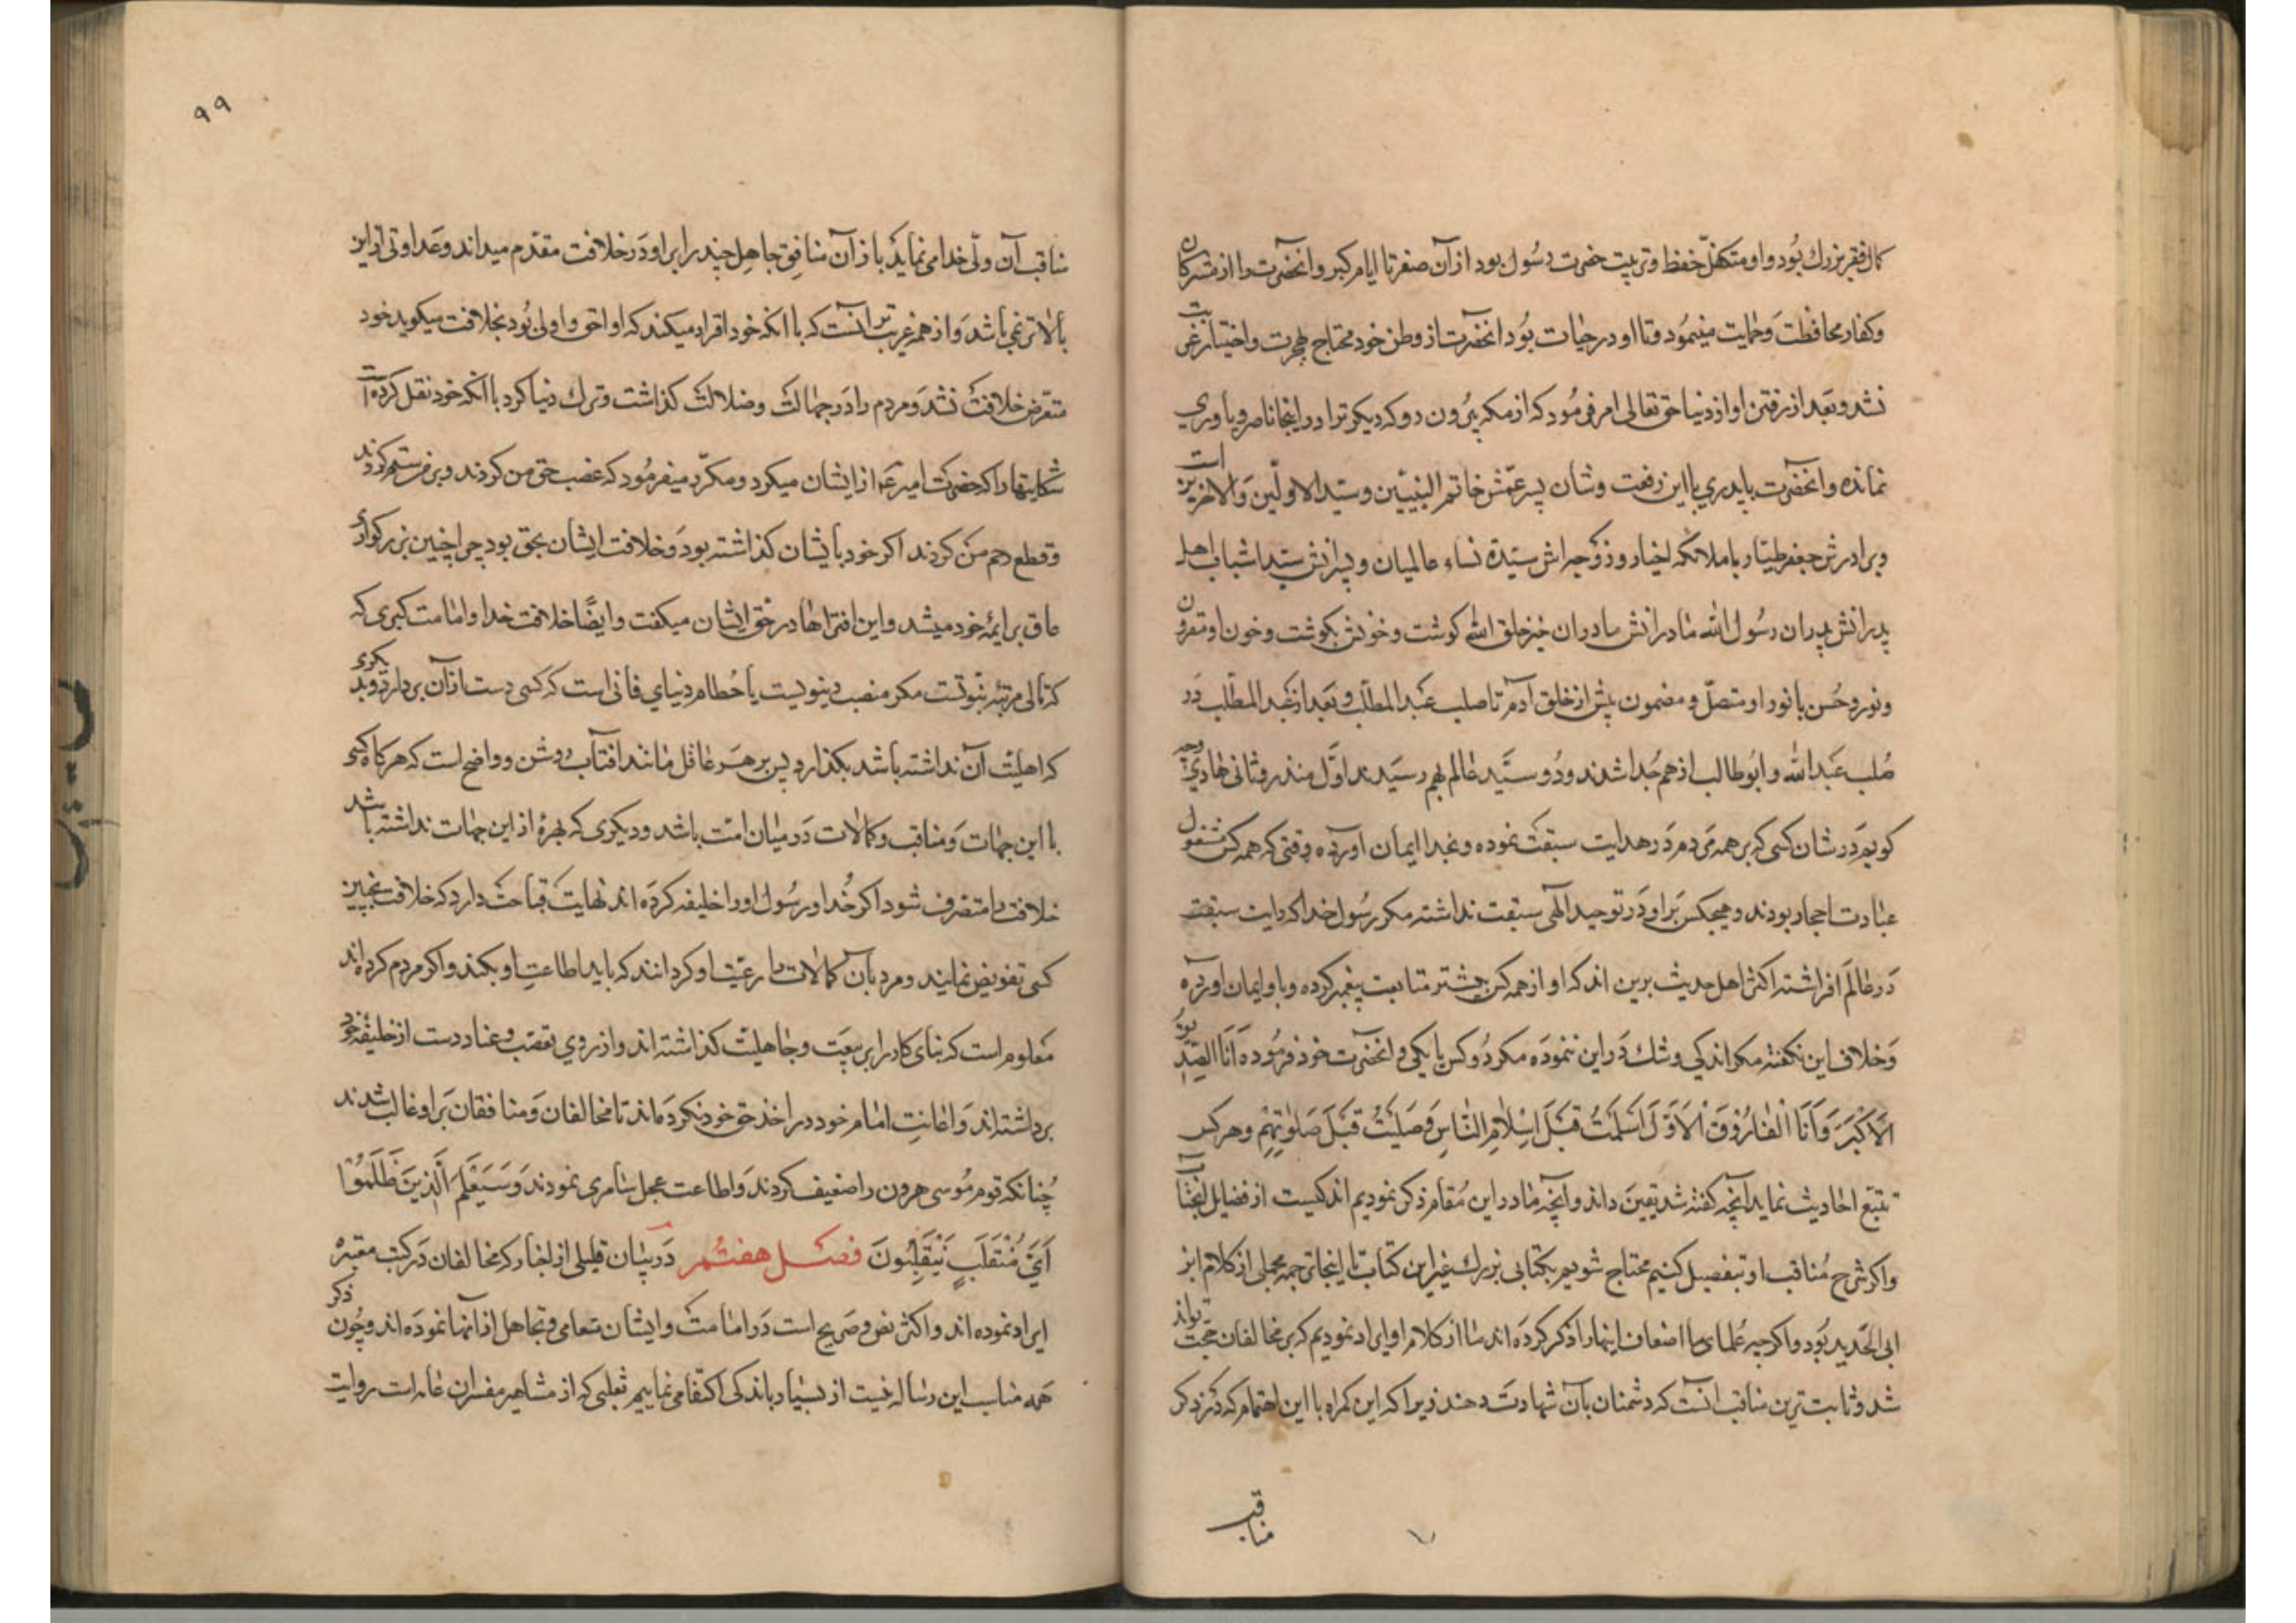 کمال فقر بزرك بُود و او متکفّل حفظ و تربیت حضرت رسُول بود از آن صغر تا ایام کبر و آنحضرت را از مشرکان
و کفار محافظت و حمایت مینمُود و تا او در حیات بُود آنحضرت از وطن خود محتاج هجرت و اختیار غربت
نشد و بعد از رفتن او از دنیا حق تعالی امر فرمُود که از مکه بیُرون رو که دیکر ترا در اینجا ناصر و یاوری
نمانده و آنحضرت با پدری با این رفعت و شان پسر عمّش خاتم النبیّین و سیّد الاولّین والاخرین است
و برادرش جعفر طیّار با ملائکه اخیار و زوجه اش سیّدة نساء عالمیان و پسرانش سیّدا شباب اهل
پدرانش پدران رسُول الله مادرانش مادران خیر خلق الله کوشت و خونش بکوشت و خون او مقرون
و نور و حُسن با نور او متصلّ و مضمون پیش از خلق آدم تا صلب عبد المطلّب و بعد از عبد المطلّب در
صُلب عبد الله و ابُو طالب از هم جُدا شدند و دُو سیَّد عالم بهم رسیدند اوّل منذر و ثانی هادی چه
کویم در شان کسی که بر همه مردم در هدایت سبقت نموده و بخدا ایمان آورده وقتی که همه کس مشغول
عبادت احجار بودند و هیچکس بر او در توحید الهی سبقت نداشته مکر رسُول خدا که رایت سبقت
در عالم افراشته اکثر اهل حدیث برین اند که او از همه کس پیشتر متابعت پیغمبر کرده و باو ایمان آورده
و خلاف این نکفته مکر اندکی و شك در این ننموده مکر دُو کس یا یکی و آنحضرت خود فرمُوده اَنَا الصّدِّیق
الاَکبَرَ وَ اَنَا الفارُوقَ الاَوَّلَ اَسلَمتُ قَبلَ اِسلامِ النّاسِ وَ صَلَّیتُ قَبلَ صَلوتِهِم و هر کس
تتبّع احادیث نماید آنچه کفته شد یقین داند و آنچه ما در این مُقام ذکر نمودیم اندکیست از فضایل آنجناب
و اکر شرح مُناقب او بتفصیل کنیم محتاج شویم بکتابی بزرك غیر این کتاب تا اینجا ترجمه مجملی از کلام ابن
ابی الحَدید بُود و اکر چه عُلمای ما اضعاف اینها را ذکر کرده اند ما از کلام او ایراد نمودیم که بر مخالفان حجّت تواند
شد و ثابت ترین مناقب آنست که دشمنان بآن شهادت دهند زیرا که این کمراه با این اهتمام که در ذکر
مناقب
٩٩
مناقب آن ولّی خدا می نماید باز آن منافق جاهل چند را بر او در خلافت مقدّم میداند و عداوتی از این
بالاتر نمی باشد و از همه غریب تر آنست که با آنکه خود اقرار میکند که او احق و اولی بُود بخلافت میکوید خود
متعرّض خلافت نشد و مردم را در جهالت و ضلالت کذاشت و ترك دنیا کرد با آنکه خود نقل کرده است
شکایتها را که حضرت امیر ع از ایشان میکرد و مکرّر میفرمُود که غصب حق من کردند و بر من ستم کردند
و قطع رحم من کردند اکر خود بایشان کذاشته بود و خلافت ایشان بحق بود چرا چنین بزرکواری
عاق بر ائمّه خود میشد و این افتراها در حق ایشان میکفت و ایضًا خلافت خدا و امامت کبری که
که تالی مرتبه نبوّتست مکر منصب دینویست یا حُطام دنیای فانی است که کسی دست از آن بردارد و بدیکری
که اهلیّت آن نداشته باشد بکذارد پس بر هر عاقل مانند افتاب روشن و واضح است که هر کاه کسی
با این جهات و مناقب و کمالات در میان امّت باشد و دیکری که بهرهٔ از این جهات نداشته باشد
خلافت را متصرف شود اکر خُدا و رسُول او را خلیفه کرده اند نهایت قباحت دارد که خلافت بچنین
کسی تفویض نمایند و مرد بآن کمالات را رعیّت او کردانند که باید اطاعتِ او بکند و اکر مردم کرده اند
معلوم است که بنای کار را بر بیعت و جاهلیّت کذاشته اند و از روی تعصّب و عناد دست از خلیفهٔ خود
برداشته اند و اعانتِ امام خود در اخذ حق خود نکرده اند تا مخالفان و منافقان بر او غالب شدند
چُنانکه قوم مُوسی هرون را ضعیف کردند و اطاعت عجل سامری نمودند وَ سَیَعلَم الَّذینَ ظَلَمُوا
اَیَّ مُنقَلَبٍ یَنقَلِبُونَ فصل هفتُم در بیان قلیلی از اخبار که مخالفان در کتب معتبره
ایراد نموده اند و اکثر نص و صریح است در امامت و ایشان تعامی و تجاهل از آنها نموده اند و چُون ذکر
همه مناسب این رساله نیست از بسیار باندکی اکتفا می نماییم ثعلبی که از مشاهیر مفسران عامه است روایت